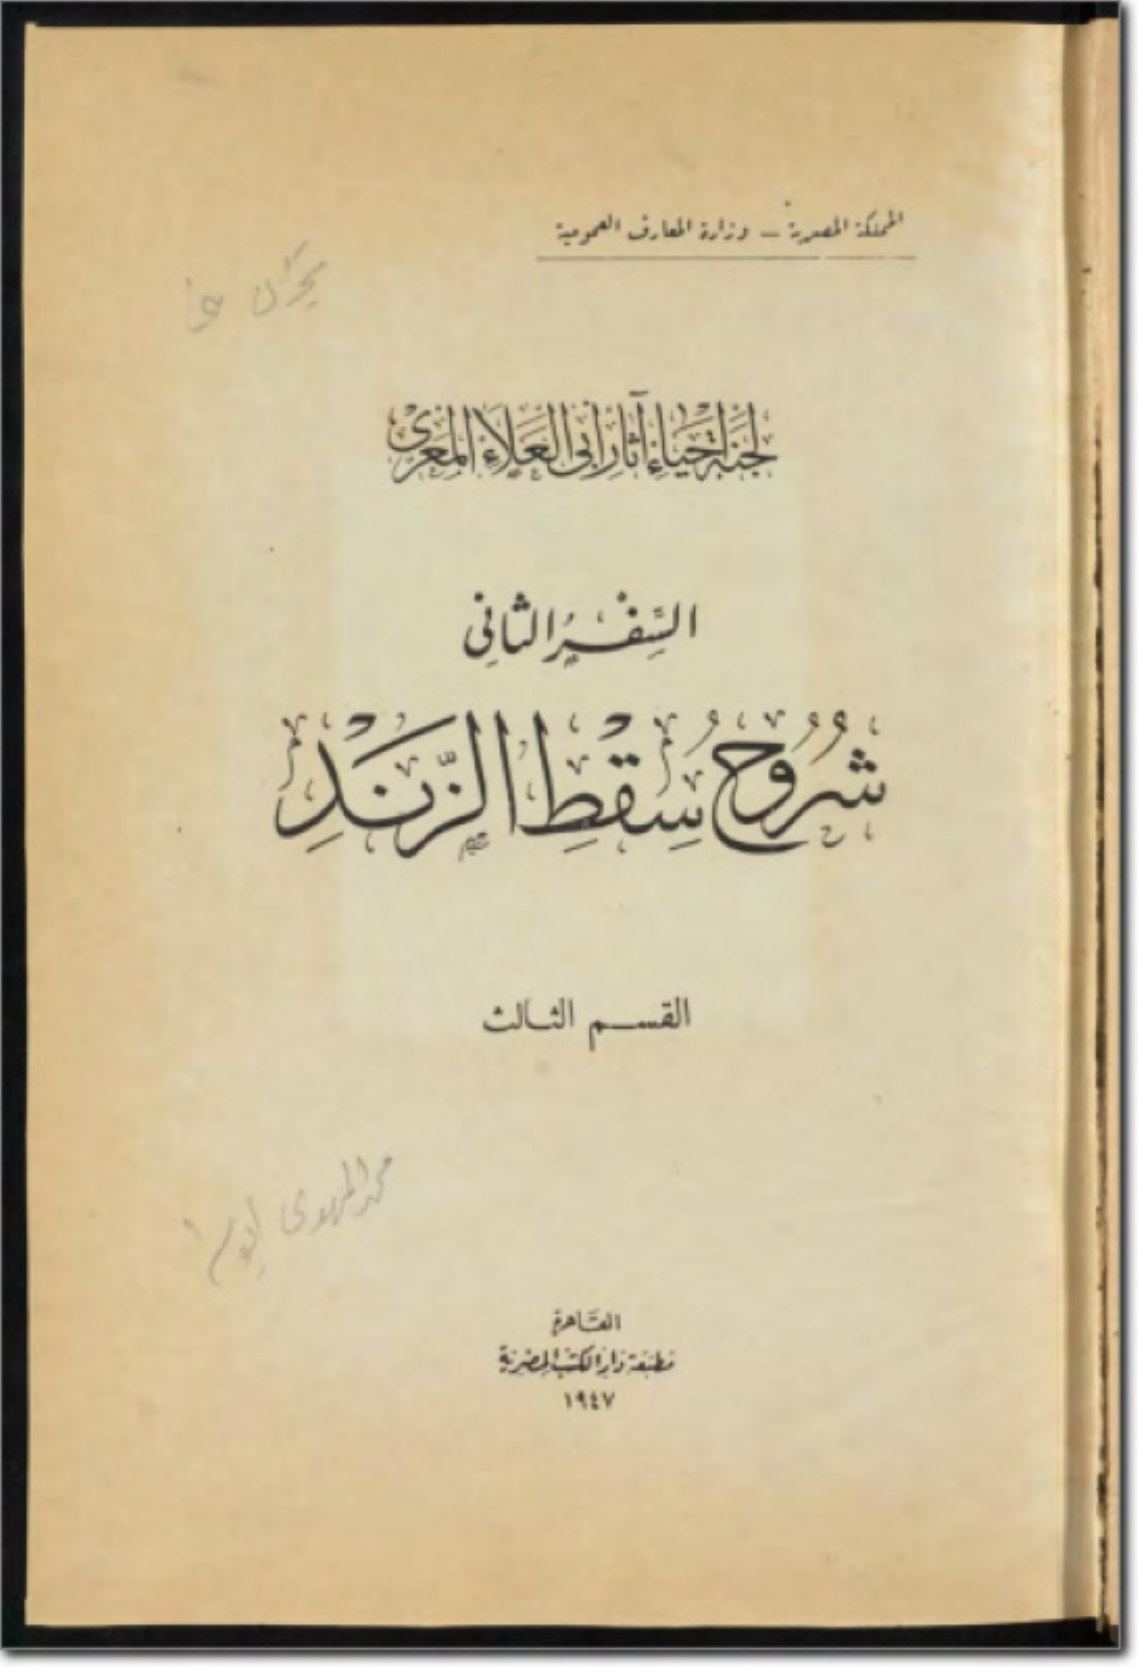 المملكة المصرية — وزارة المعارف العمومية
لجنة إحياء آثار أبي العلاء المعرى
السِّفْرُ الثانى
شُرُوحُ سِقْطِ الزَّنْدِ
القسم الثالث
محمد المهدى
القاهرة
مطبعة دار الكتب المصرية
١٩٤٧